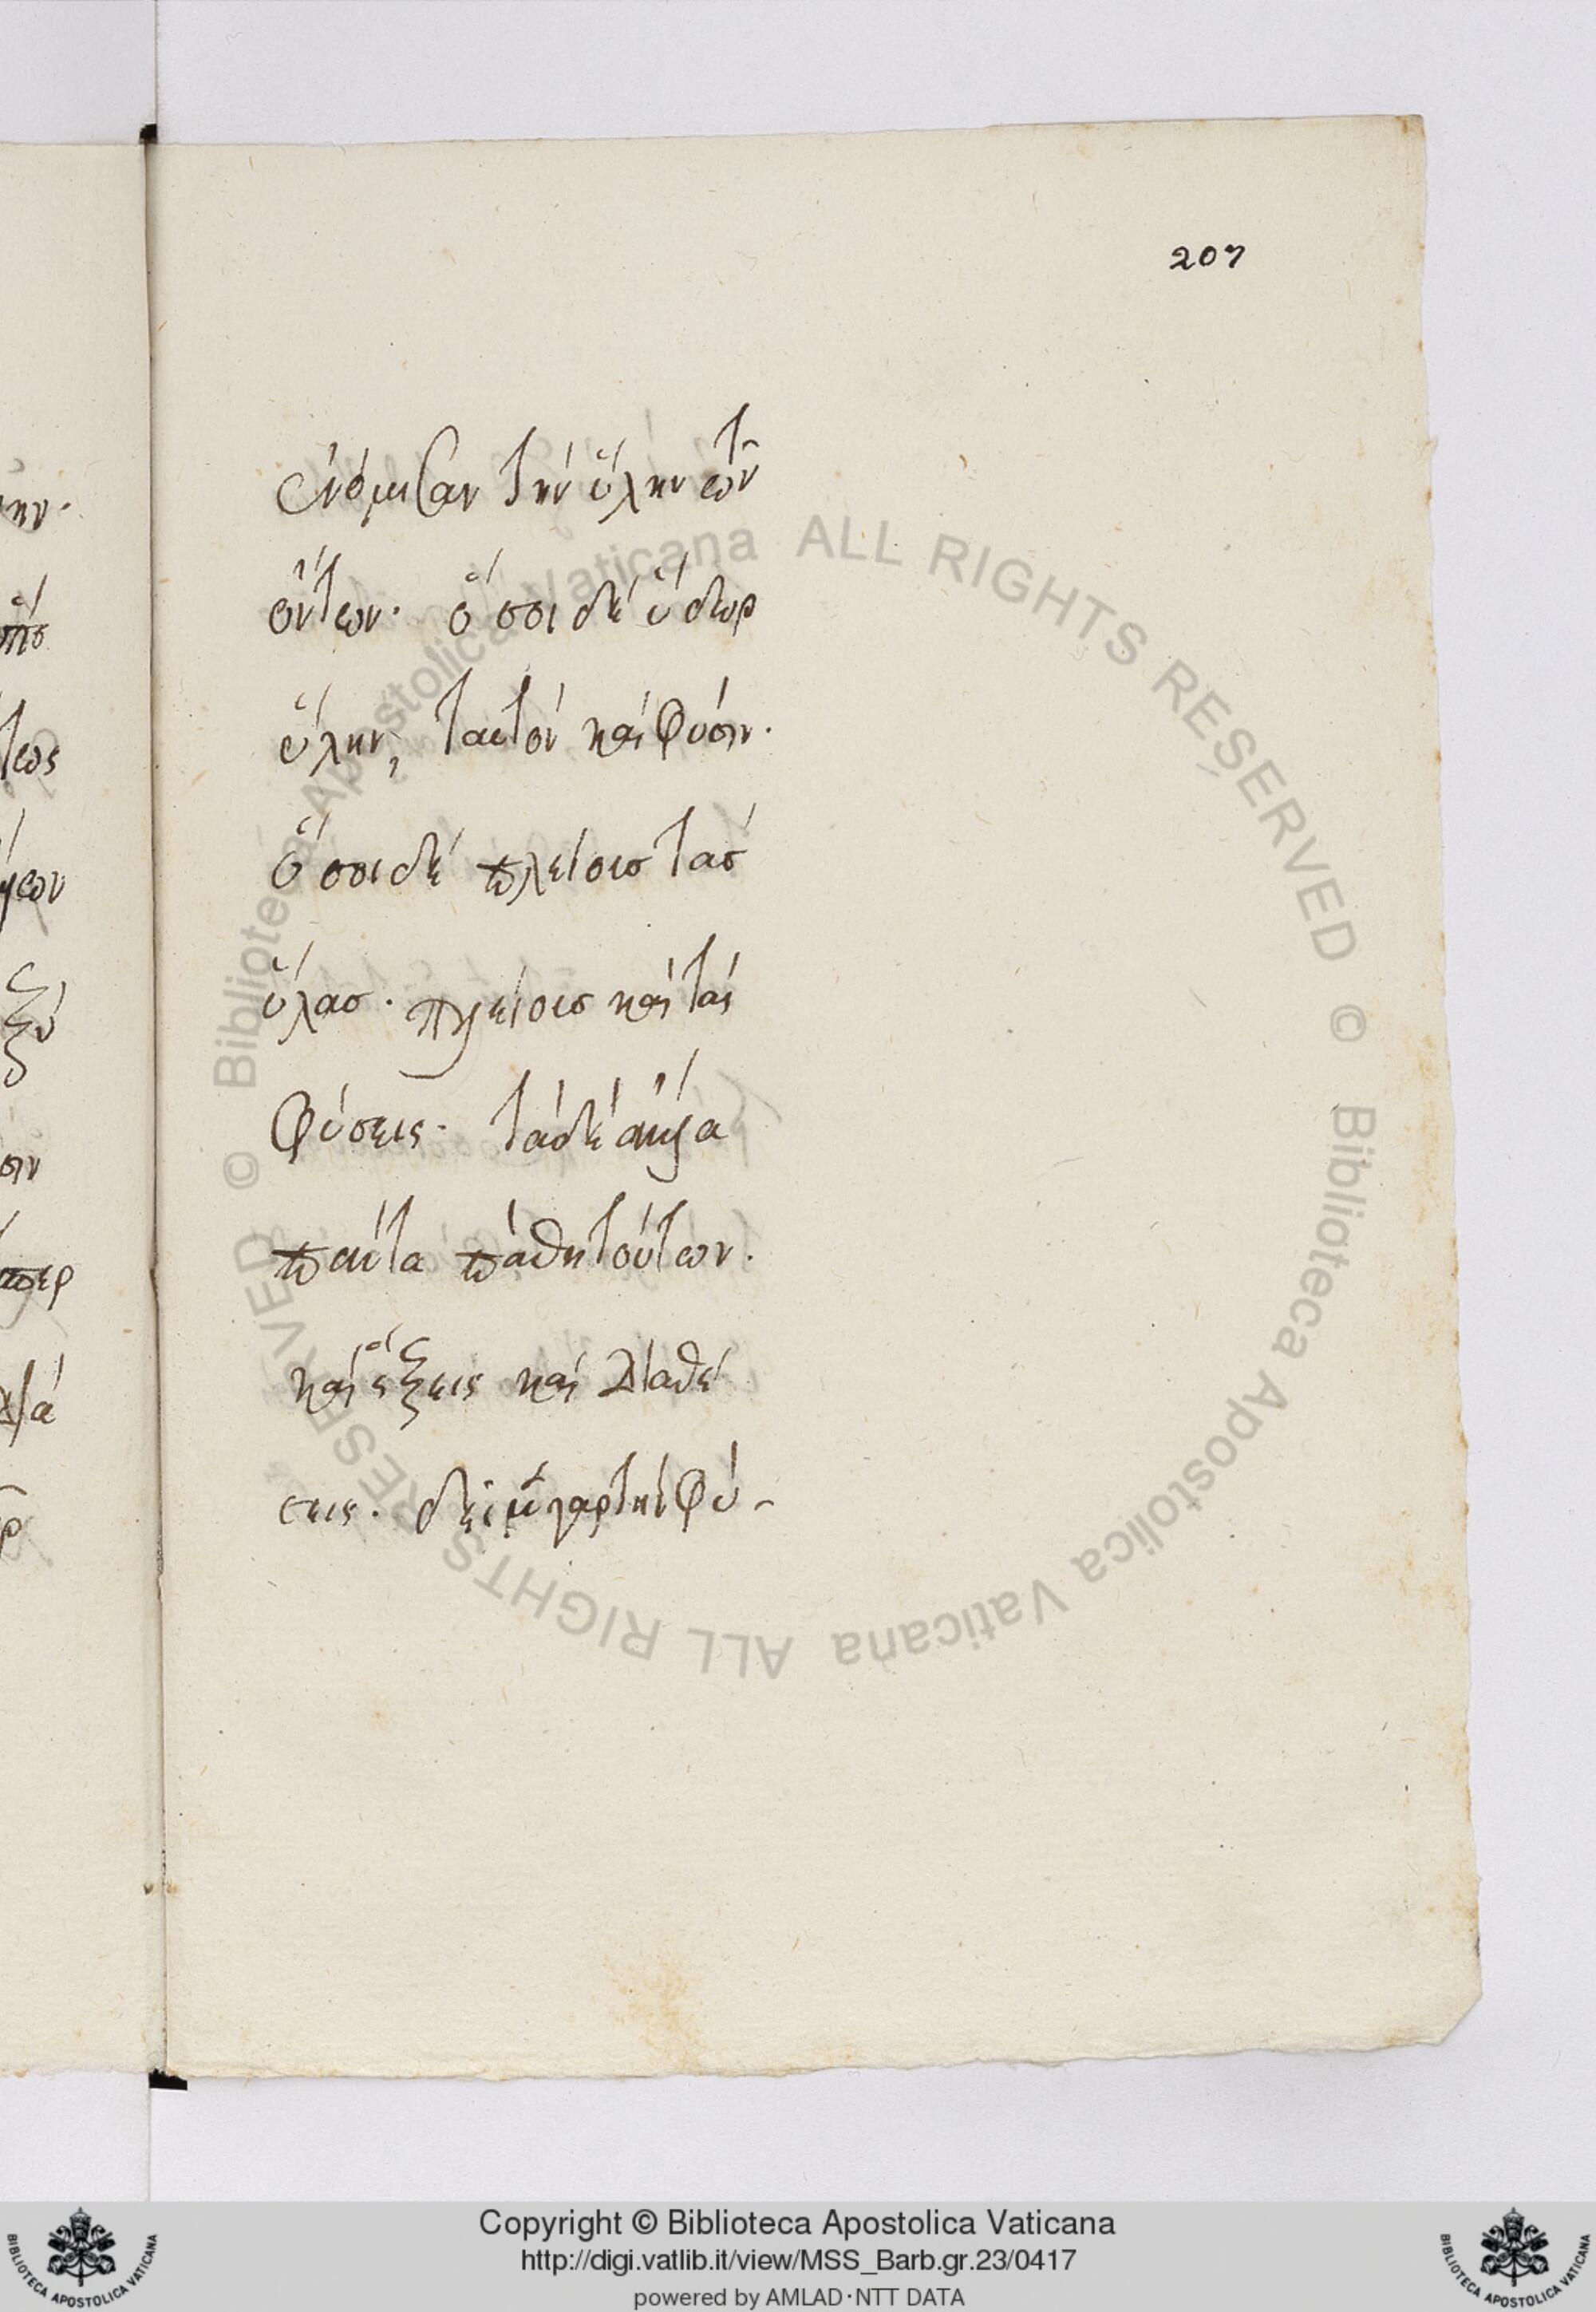 207
ἐνόμισαν τὴν ὕλην τῶν
ὄντων· ὅσοι δὲ ὕδωρ
ὕλην, ταυτὸν καὶ φύσιν·
ὅσοι δὲ πλείουσ τὰσ
ὕλασ· πλείουσ καὶ τὰς
φύσεις· τὰ δὲ ἄλλα
πάντα πάθη τούτων·
καὶ ἕξεις καὶ διαθέ
σεις· δεῖ μὲν γὰρ τὴν φύ-
© Biblioteca Apostolica Vaticana ALL RIGHTS RESERVED © Biblioteca Apostolica Vaticana ALL RIGHTS RESERVED
Copyright © Biblioteca Apostolica Vaticana
http://digi.vatlib.it/view/MSS_Barb.gr.23/0417
powered by AMLAD·NTT DATA
BIBLIOTECA APOSTOLICA VATICANA
BIBLIOTECA APOSTOLICA VATICANA